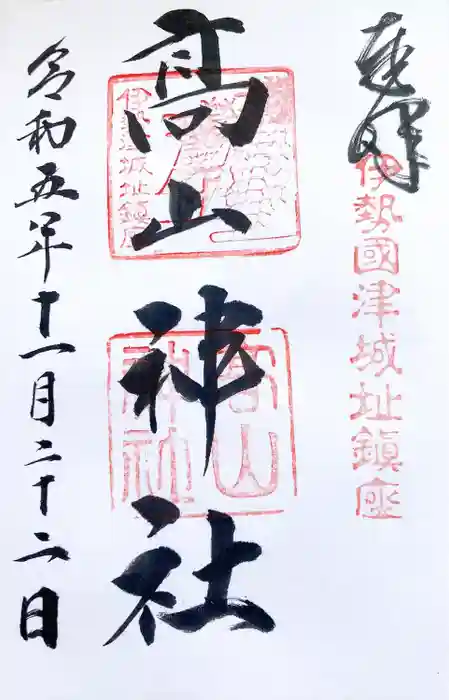 奉拝
伊勢國津城址鎮座
高山神社
伊勢津城址鎮座
高山神社
令和五年十一月二十二日